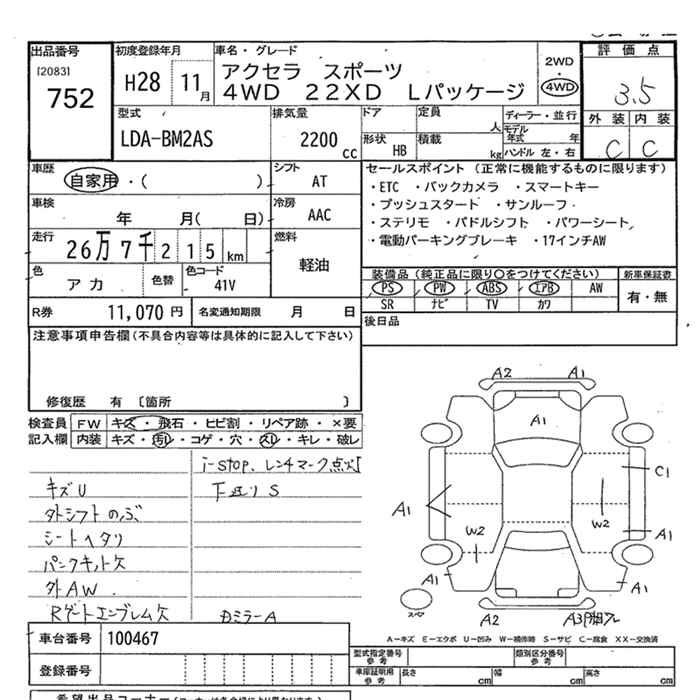 出品番号
[2083]
752
初度登録年月
H28 11月
車名・グレード
アクセラ スポーツ
4WD 22XD Lパッケージ
2WD
・
4WD
評価点
3.5
外装 内装
C C
型式
LDA-BM2AS
排気量
2200
cc
ドア
定員
人
形状
HB
積載
kg
ディーラー・並行
モデル年式 年
ハンドル 左・右
車歴
自家用・( )
シフト
AT
車検
年 月( 日)
冷房
AAC
走行
26万7千215km
燃料
軽油
色
アカ
色替
色コード
41V
セールスポイント (正常に機能するものに限ります)
・ETC ・バックカメラ ・スマートキー
・プッシュスタート ・サンルーフ
・ステリモ ・パドルシフト ・パワーシート
・電動パーキングブレーキ ・17インチAW
装備品(純正品に限り○をつけてください)
新車保証書
PS PW ABS エアB AW
有・無
SR ナビ TV カワ
R券 11,070円
名変通知期限 月 日
後日品
注意事項申告欄(不具合内容等は具体的に記入して下さい)
修復歴 有 〔箇所 〕
検査員
記入欄
FW キズ・飛石・ヒビ割・リペア跡・×要
内装 キズ・汚レ・コゲ・穴・スレ・キレ・破レ
i-stop、レンチマーク点灯
キズU
下廻りS
外シフトのぶ
シートヘタリ
パンクキット欠
外AW
Rゲートエンブレム欠
カミラーA
A2 A1
A1
C1
A1
W2
W2
A1
A1
A1
A2
A-キズ E-エクボ U-凹み W-補修跡 S-サビ C-腐食 XX-交換済
車台番号 100467
登録番号
型式指定番号
参考
類別区分番号
参考
車庫証明用
参考
長さ cm
幅 cm
高さ cm